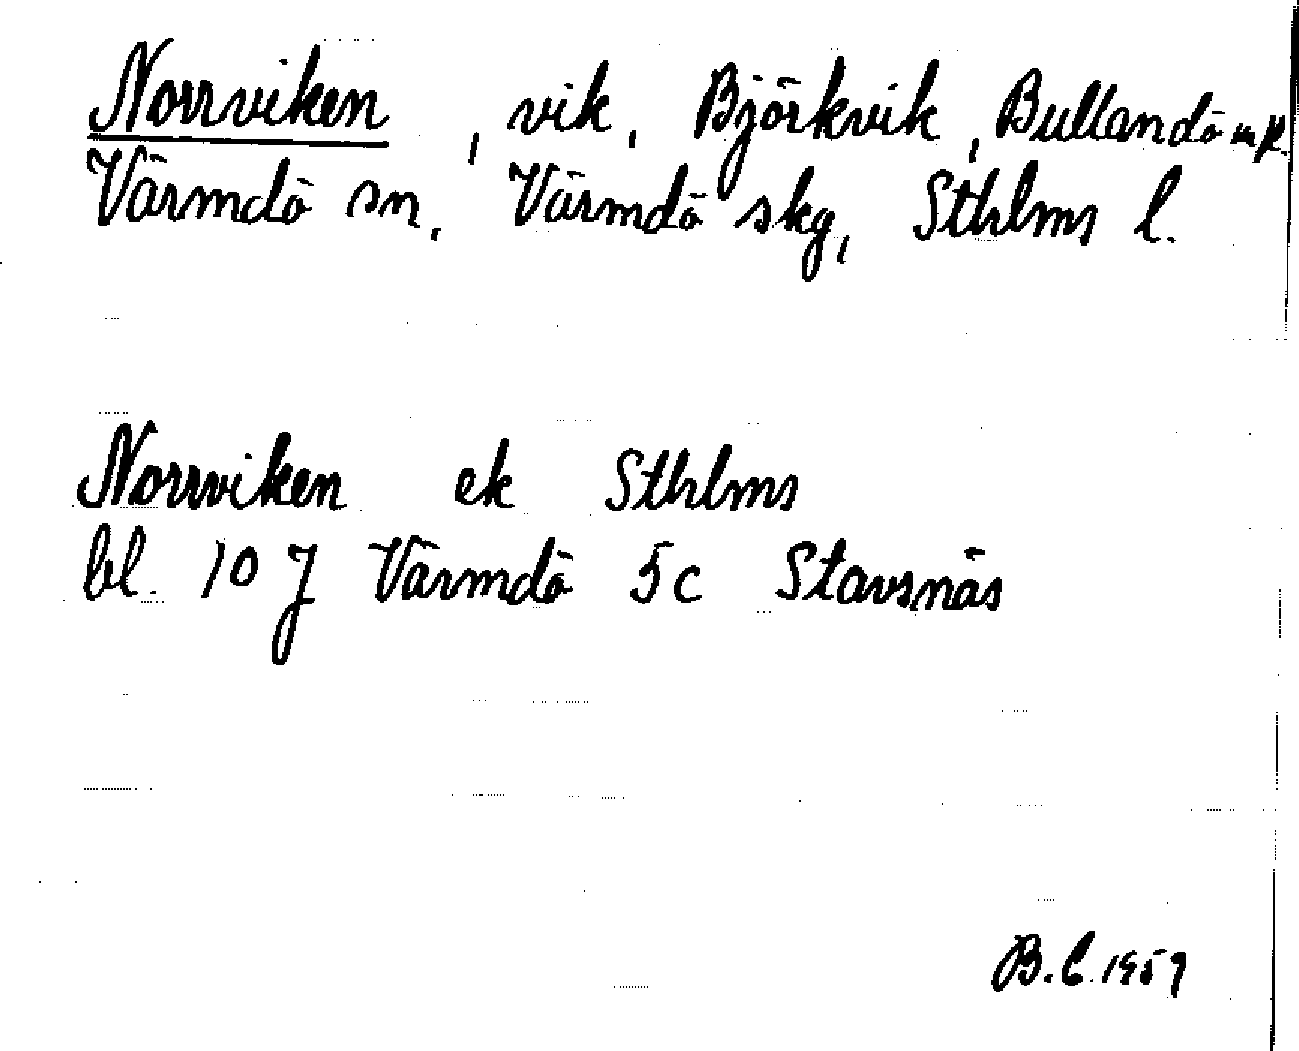 Norrviken, vik, Björkvik, Bullandö m fl.
Värmdö sn, Värmdö skg, Sthlms l.
Norrviken ek Sthlms
bl. 10 J Värmdö 5c Stavsnäs
B.C. 1959